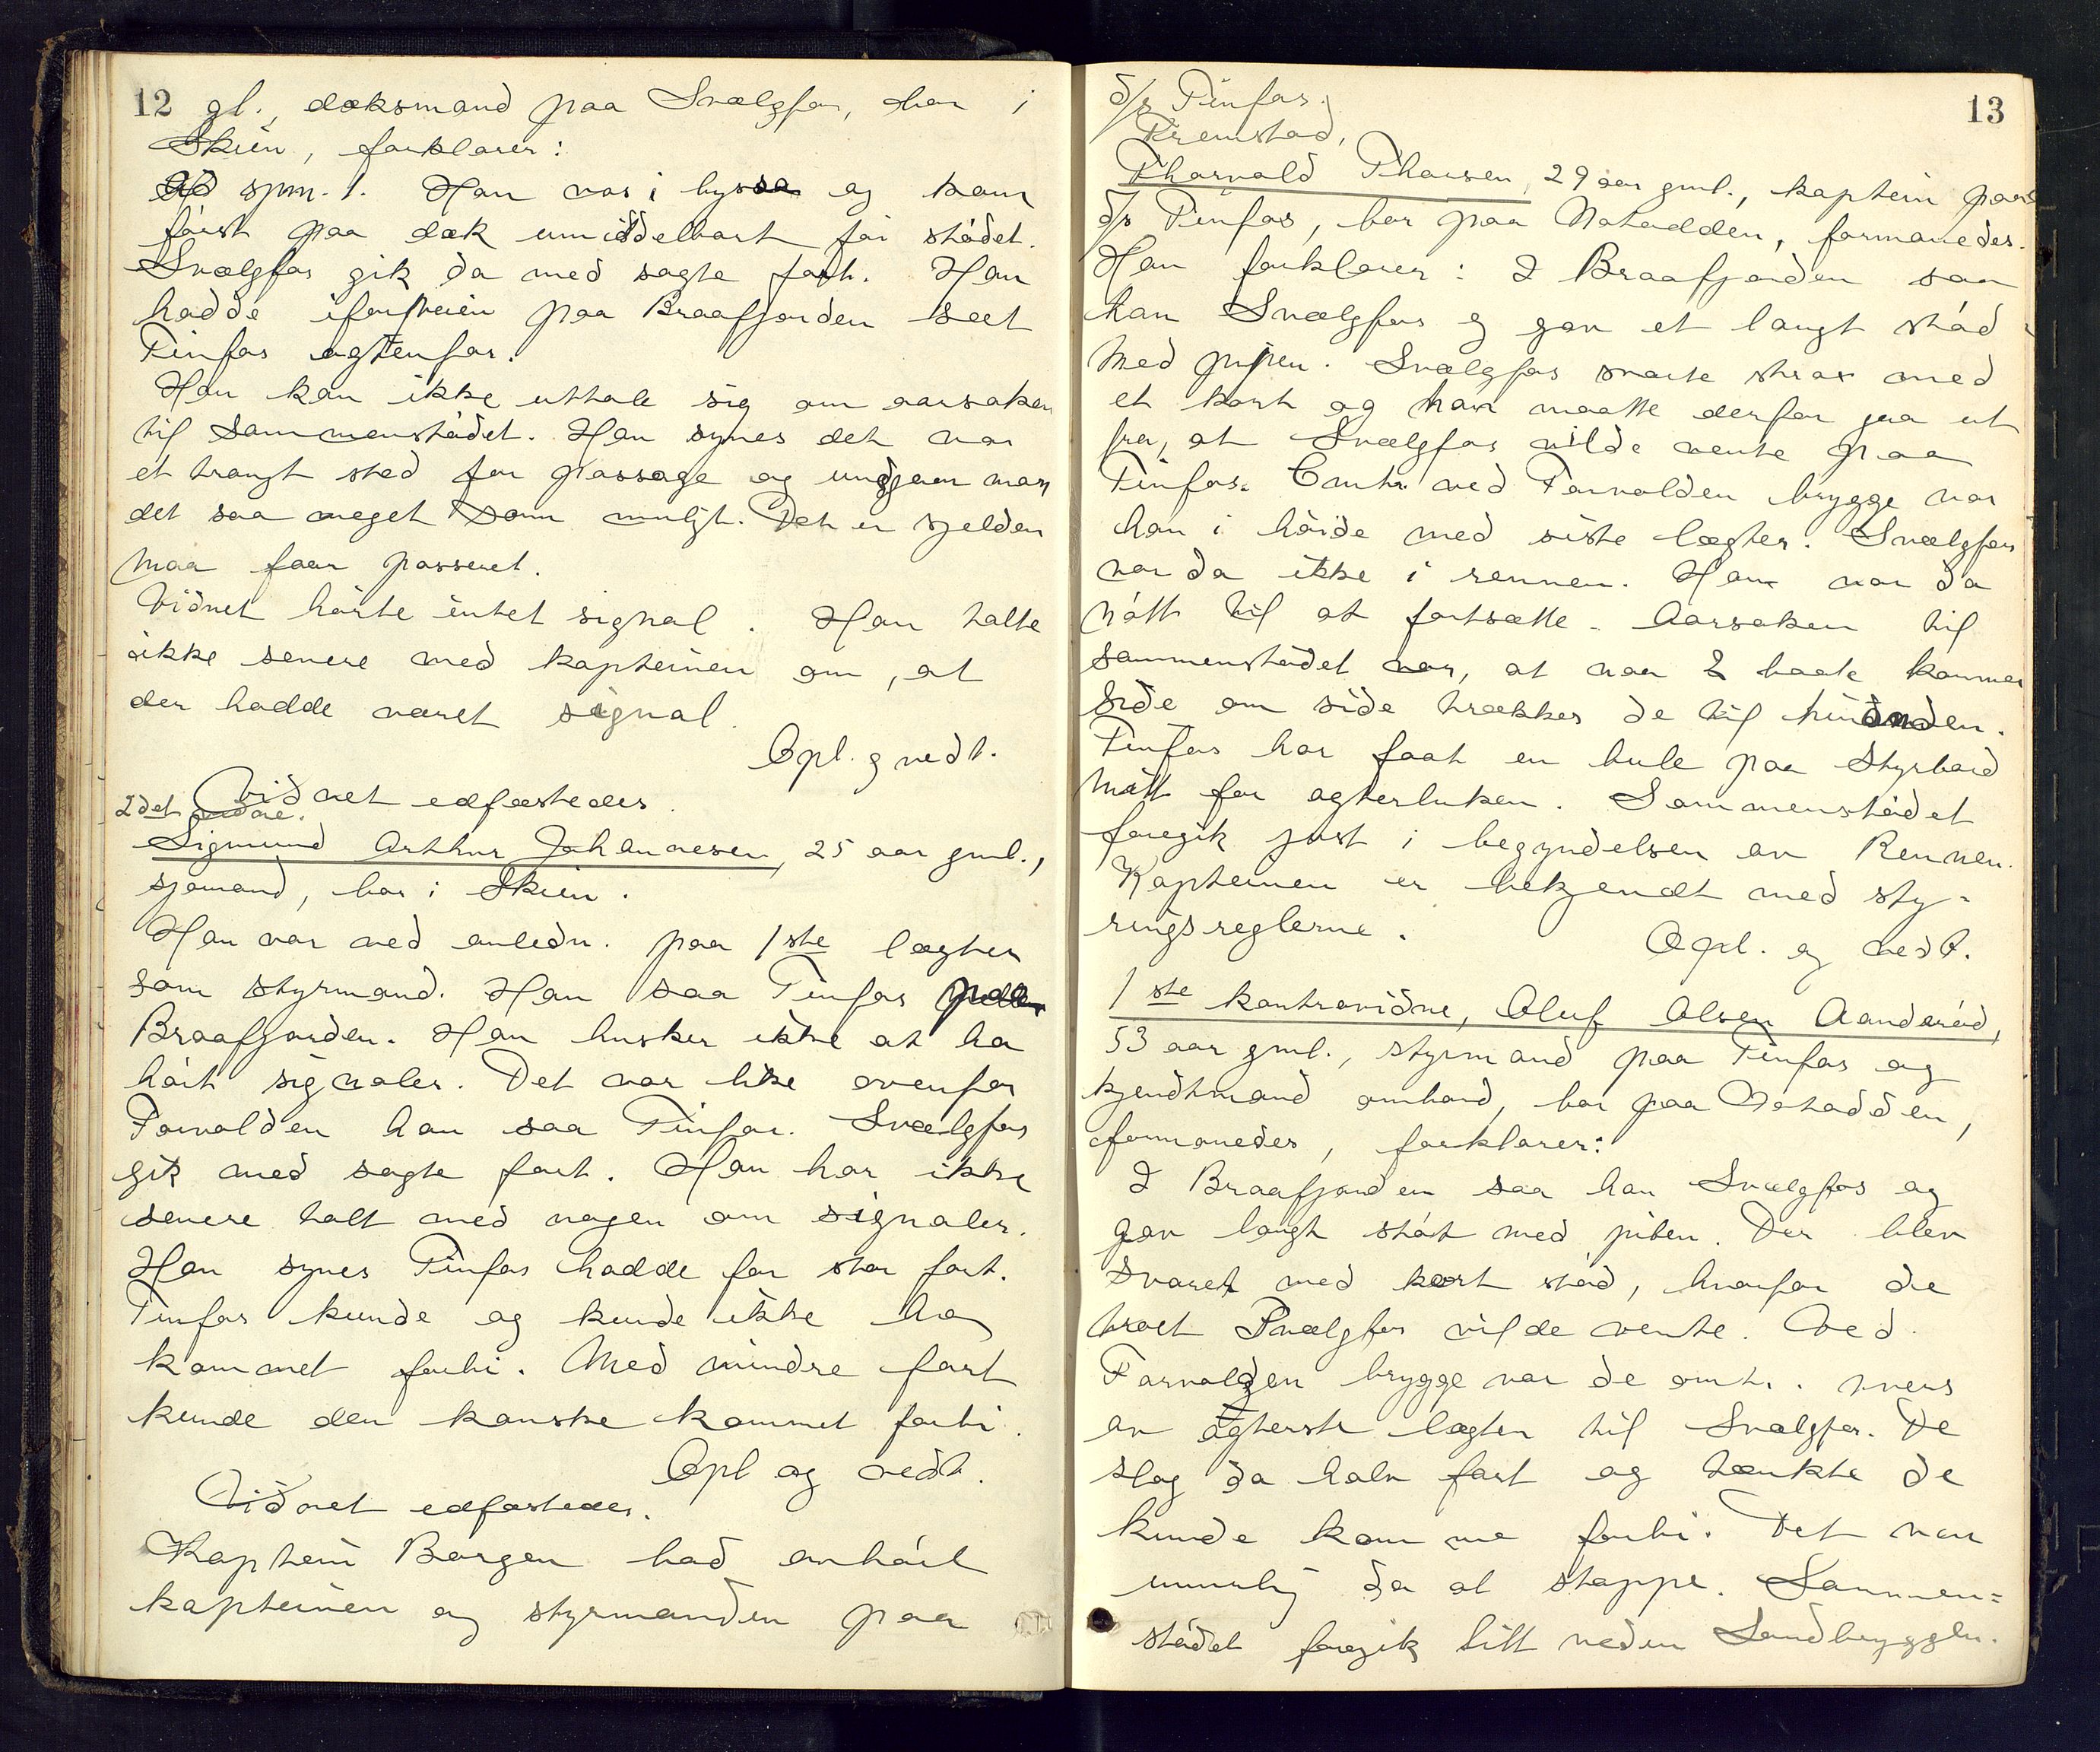 12 gl., dæksmand paa Svælgfos, bor i
Skien, forklarer:
Ad spm. 1. Han var i byssa og kom
først paa dæk umiddelbart før stødet.
Svælgfos gik da med sagte fart. Han
hadde iforveien paa Braafjorden seet
Tinfos agtenfor.
Han kan ikke uttale sig om aarsaken
til sammenstødet. Han synes det var
et trangt sted for passage og undgaar man
det saa meget som muligt. Det er sjelden
maa faar passeret.
Vidnet hørte intet signal. Han talte
ikke senere med kapteinen om, at
der hadde været signal.
Opl. og vedt.
Vidnet edfæstedes.
2det vidne.
Sigmund Arthur Johannesen, 25 aar gml.,
sjømand, bor i Skien.
Han var ved anledn. paa 1ste lægter
som styrmand. Han saa Tinfos paa
Braafjorden. Han husker ikke at ha
hørt signaler. Det var like ovenfor
Farvolden han saa Tinfos. Svælgfos
gik med sagte fart. Han har ikke
senere talt med nogen om signaler.
Han synes Tinfos hadde for stor fart.
Tinfos kunde og kunde ikke ha
kommet forbi. Med mindre fart
kunde den kanske kommet forbi.
Opl og vedt.
Vidnet edfæstedes.
Kaptein Borgen bad avhørt
kapteinen og styrmanden paa
13
d/s Tinfos.
Fremstod,
Thorvald Thorsen, 29 aar gml., kaptein paa
d/s Tinfos, bor paa Notodden, formanedes.
Han forklarer: I Braafjorden saa
han Svælgfos og gav et langt stød
med pipen. Svælgfos svarte strax med
et kort og han maatte derfor gaa ut
fra, at Svælgfos vilde vente paa
Tinfos. Omtr. ved Farvolden brygge var
han i høide med siste lægter. Svælgfos
var da ikke i rennen. Han var da
nøtt til at fortsætte. Aarsaken til
sammenstødet var, at naar 2 baate kommer
side om side trækker de til hinanden.
Tinfos har faat en bule paa Styrbord
mitt for agterluken. Sammenstødet
foregik just i begyndelsen av Rennen.
Kapteinen er bekjendt med sty-
ringsreglerne.
Opl. og vedt.
1ste kontravidne, Oluf Olsen Aanderød,
53 aar gml., styrmand paa Tinfos og
kjendtmand ombord, bor paa Notodden,
formanedes, forklarer:
I Braafjorden saa han Svælgfos og
gav langt støt med piben. Der blev
svaret med kort stød, hvorfor de
troet Svælgfos vilde vente. Ved
Farvolden brygge var de omtr. tvers
av agterste lægter til Svælgfos. De
slog da halv fart og tænkte de
kunde komme forbi. Det var
umulig da at stoppe. Sammen=
stødet foregik litt neden Sandbryggen.